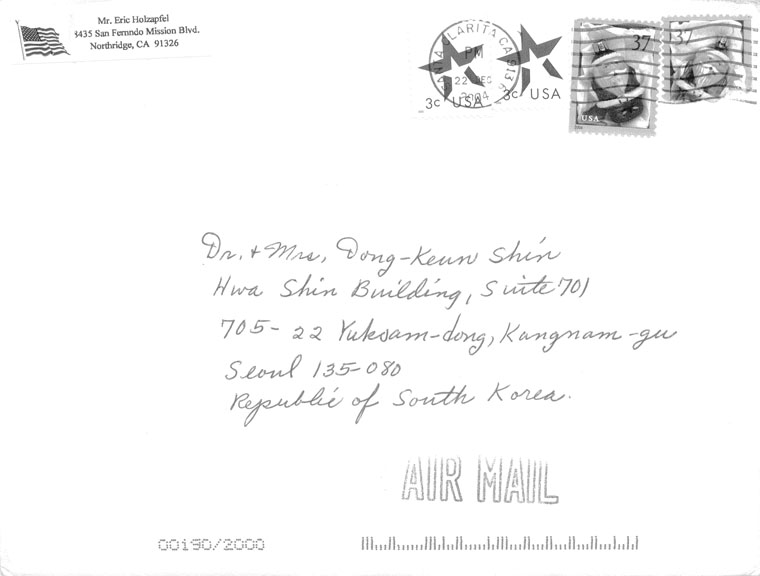 Mr. Eric Holzapfel
8435 San Fernndo Mission Blvd.
Northridge, CA 91326
SANTA CLARITA CA 913
PM
22 DEC
2004
3c USA
3c USA
37
USA
37
Dr. + Mrs. Dong-Keun Shin
Hwa Shin Building, Suite 701
705-22 Yuksam-dong, Kangnam-gu
Seoul 135-080
Republic of South Korea.
AIR MAIL
00190/2000